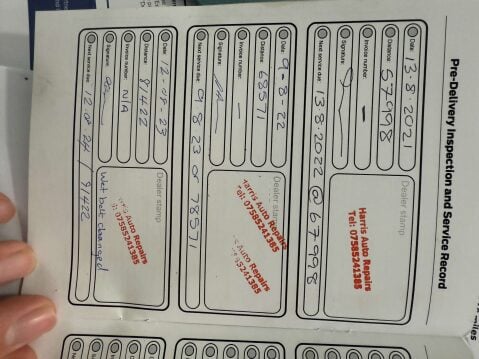 Pre-Delivery Inspection and Service Record
Date 13.8.2021
Distance 57998
Invoice number –
Signature
Next service due 13.8.2022 @ 67998
Dealer stamp
Harris Auto Repairs
Tel: 07585241385
Date 9-8-22
Distance 68571
Invoice number –
Signature
Next service due 9 8 23 or 78571
Dealer stamp
Harris Auto Repairs
Tel: 07585241385
Auto Repairs
5241385
Date 12-08-23
Distance 81422
Invoice number N/A
Signature
Next service due 12.08 24 / 91422
Dealer stamp
Auto Repairs
07585241385
Wet belt changed
miles